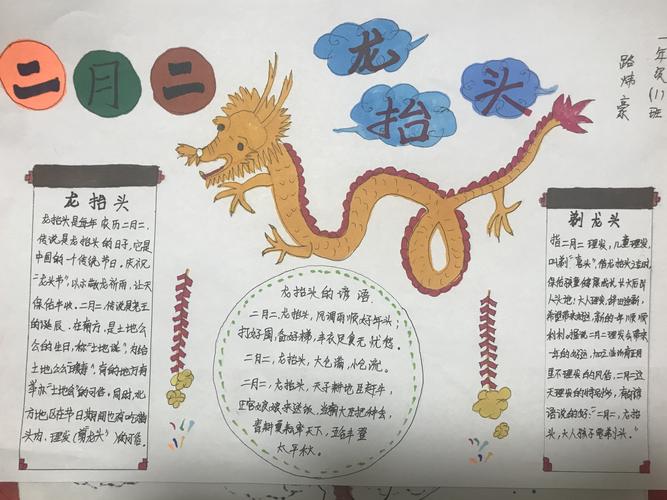 二月二
龙抬头
一年级(1)班
路炜豪
龙抬头
龙抬头是每年农历二月二,
传说是龙抬头的日子,它是
中国的一个传统节日。庆祝
"龙头节",以示敬龙祈雨,让天
保佑丰收。二月二,传说是龙王
的诞辰,在南方,是土地公
公的生日,称"土地诞",为给
土地公公"暖寿",有的地方有
举办"土地会"的习俗。同时,北
方地区在节日期间也有吃猪
头肉、理发(剪龙头)的习俗。
龙抬头的谚语
二月二,龙抬头,风调雨顺好年头;
打好囤,备好梯,丰衣足食无忧愁。
二月二,龙抬头,大仓满,小仓流。
二月二,龙抬头,天子耕地臣赶牛,
正宫娘娘来送饭,当朝大臣把种丢,
春耕夏耘率天下,五谷丰登
太平秋。
剃龙头
指二月二理发,儿童理发,
叫剃"喜头",借龙抬头之时,
保佑孩童健康成长,长大后出
人头地;大人理发,辞旧迎新,
希望带来好运,新的一年顺顺
利利。据说二月二理发会带来
一年的好运,
里不理发的风俗,二月二这
天理发店
语说的好:"二月二,龙抬
头,大人孩子要剃头。"